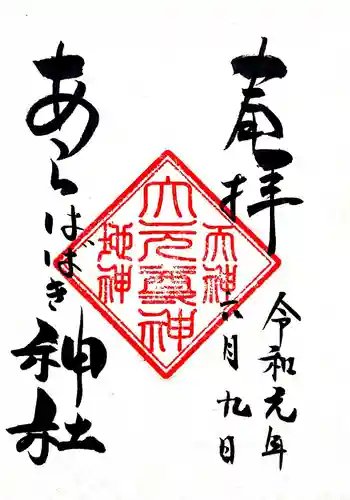 奉拝
令和元年
六月九日
天神
大元霊神
地神
あらはばき神社